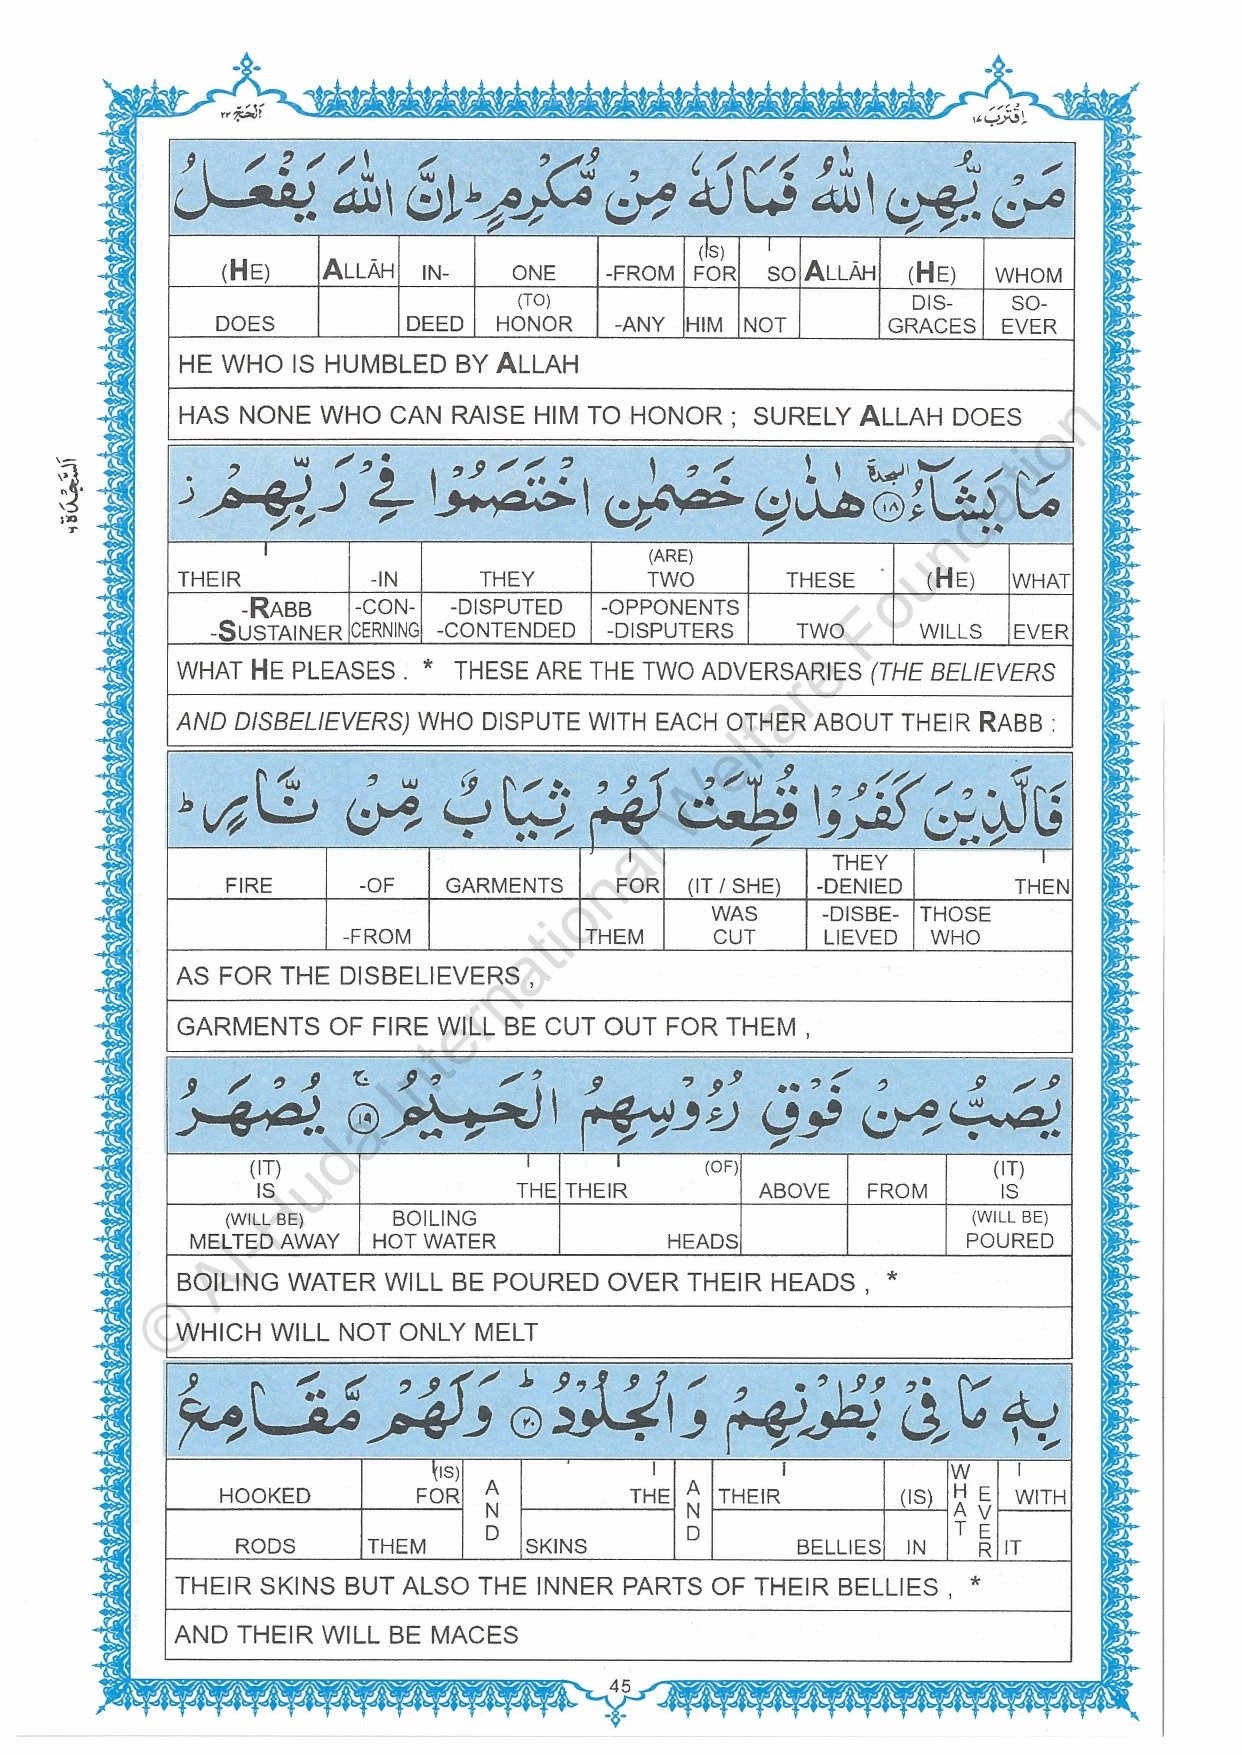 اِقْتَرَبَ ١٧
اَلْحَجّ ٢٢
مَنْ يُّهِنِ اللّٰهُ فَمَا لَهٗ مِنْ مُّكْرِمٍ ؕ اِنَّ اللّٰهَ يَفْعَلُ
(HE) ALLĀH IN- ONE -FROM (IS) FOR SO ALLĀH (HE) WHOM
DOES DEED (TO) HONOR -ANY HIM NOT DIS- GRACES SO- EVER
HE WHO IS HUMBLED BY ALLAH
HAS NONE WHO CAN RAISE HIM TO HONOR ; SURELY ALLAH DOES
اَلسَّجْدَة ٦
مَا يَشَآءُ السجدة ۱۸ هٰذٰنِ خَصْمٰنِ اخْتَصَمُوْا فِيْ رَبِّهِمْ ز
THEIR -IN THEY (ARE) TWO THESE (HE) WHAT
-RABB -SUSTAINER -CON- CERNING -DISPUTED -CONTENDED -OPPONENTS -DISPUTERS TWO WILLS EVER
WHAT HE PLEASES . * THESE ARE THE TWO ADVERSARIES (THE BELIEVERS
AND DISBELIEVERS) WHO DISPUTE WITH EACH OTHER ABOUT THEIR RABB :
فَالَّذِيْنَ كَفَرُوْا قُطِّعَتْ لَهُمْ ثِيَابٌ مِّنْ نَّارٍ ؕ
FIRE -OF GARMENTS FOR (IT / SHE) THEY -DENIED THEN
-FROM THEM WAS CUT -DISBE- LIEVED THOSE WHO
AS FOR THE DISBELIEVERS ,
GARMENTS OF FIRE WILL BE CUT OUT FOR THEM ,
يُصَبُّ مِنْ فَوْقِ رُءُوْسِهِمُ الْحَمِيْمُ ج ۱۹ يُصْهَرُ
(IT) IS THE THEIR (OF) ABOVE FROM (IT) IS
(WILL BE) MELTED AWAY BOILING HOT WATER HEADS (WILL BE) POURED
BOILING WATER WILL BE POURED OVER THEIR HEADS , *
WHICH WILL NOT ONLY MELT
بِهٖ مَا فِيْ بُطُوْنِهِمْ وَالْجُلُوْدُ ؕ ۲۰ وَلَهُمْ مَّقَامِعُ
HOOKED (IS) FOR AND THE AND THEIR (IS) WHAT EVER WITH
RODS THEM SKINS BELLIES IN IT
THEIR SKINS BUT ALSO THE INNER PARTS OF THEIR BELLIES , *
AND THEIR WILL BE MACES
45
© Al-Huda International Welfare Foundation